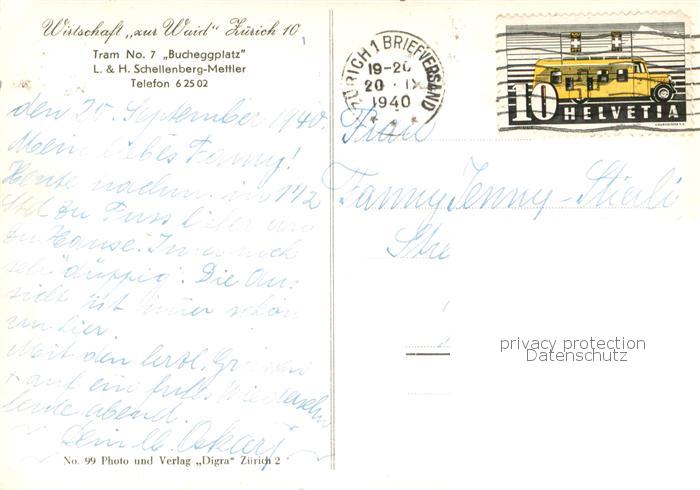 Wirtschaft „zur Waid" Zürich 10
Tram No. 7 „Bucheggplatz"
L. & H. Schellenberg-Mettler
Telefon 6 25 02
ZÜRICH 1 BRIEFVERSAND
19-20
20·IX
1940
10 HELVETIA
den 20. September 1940.
Mein liebes Fanny!
Heute nachm. in 1 1/2
Std zu Fuss hieher von
zu Hause.
sehr „düppig". Die Aus-
sicht ist immer schön
von hier.
Mit den herzl. Grüssen
+ auf ein frohes Wiedersehn
heute abend.
Dein lb. Oskar
Frau
Fanny Jenny-Stierli
privacy protection
Datenschutz
No. 99 Photo und Verlag „Digra" Zürich 2